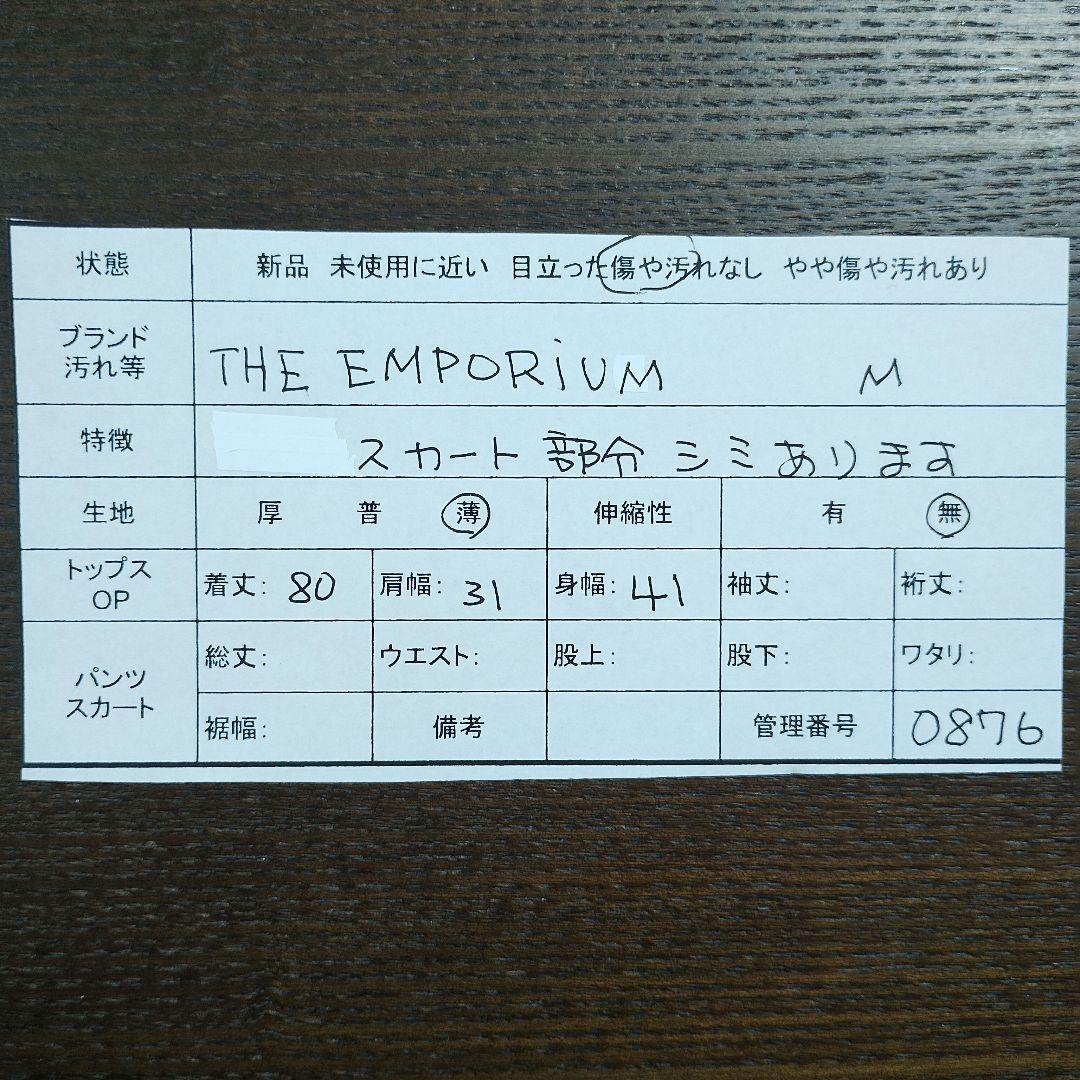 状態 新品 未使用に近い 目立った傷や汚れなし やや傷や汚れあり
ブランド
汚れ等
THE EMPORiUM M
特徴 スカート部分シミあります
生地 厚 普 薄 伸縮性 有 無
トップス
OP
着丈: 80 肩幅: 31 身幅: 41 袖丈: 裄丈:
パンツ
スカート
総丈: ウエスト: 股上: 股下: ワタリ:
裾幅: 備考 管理番号 0876